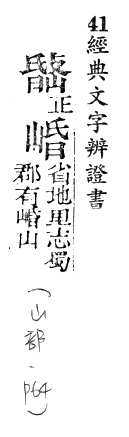 41 經典文字辨證書
正
崏省地里志蜀
郡有崏山
(山部.P64)